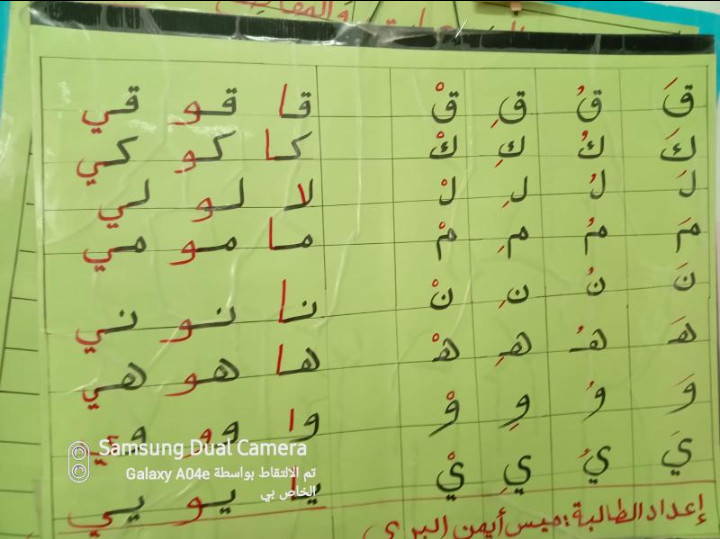 والمقا
قَ قُ قِ قْ قا قو قي
كَ كُ كِ كْ كا كو كي
لَ لُ لِ لْ لا لو لي
مَ مُ مِ مْ ما مو مي
نَ نُ نِ نْ نا نو ني
هَ هُ هِ هْ ها هو هي
وَ وُ وِ وْ وا وو وي
يَ يُ يِ يْ يا يو يي
إعداد الطالبة: ميس أيمن
Samsung Dual Camera
تم الالتقاط بواسطة Galaxy A04e
الخاص بي